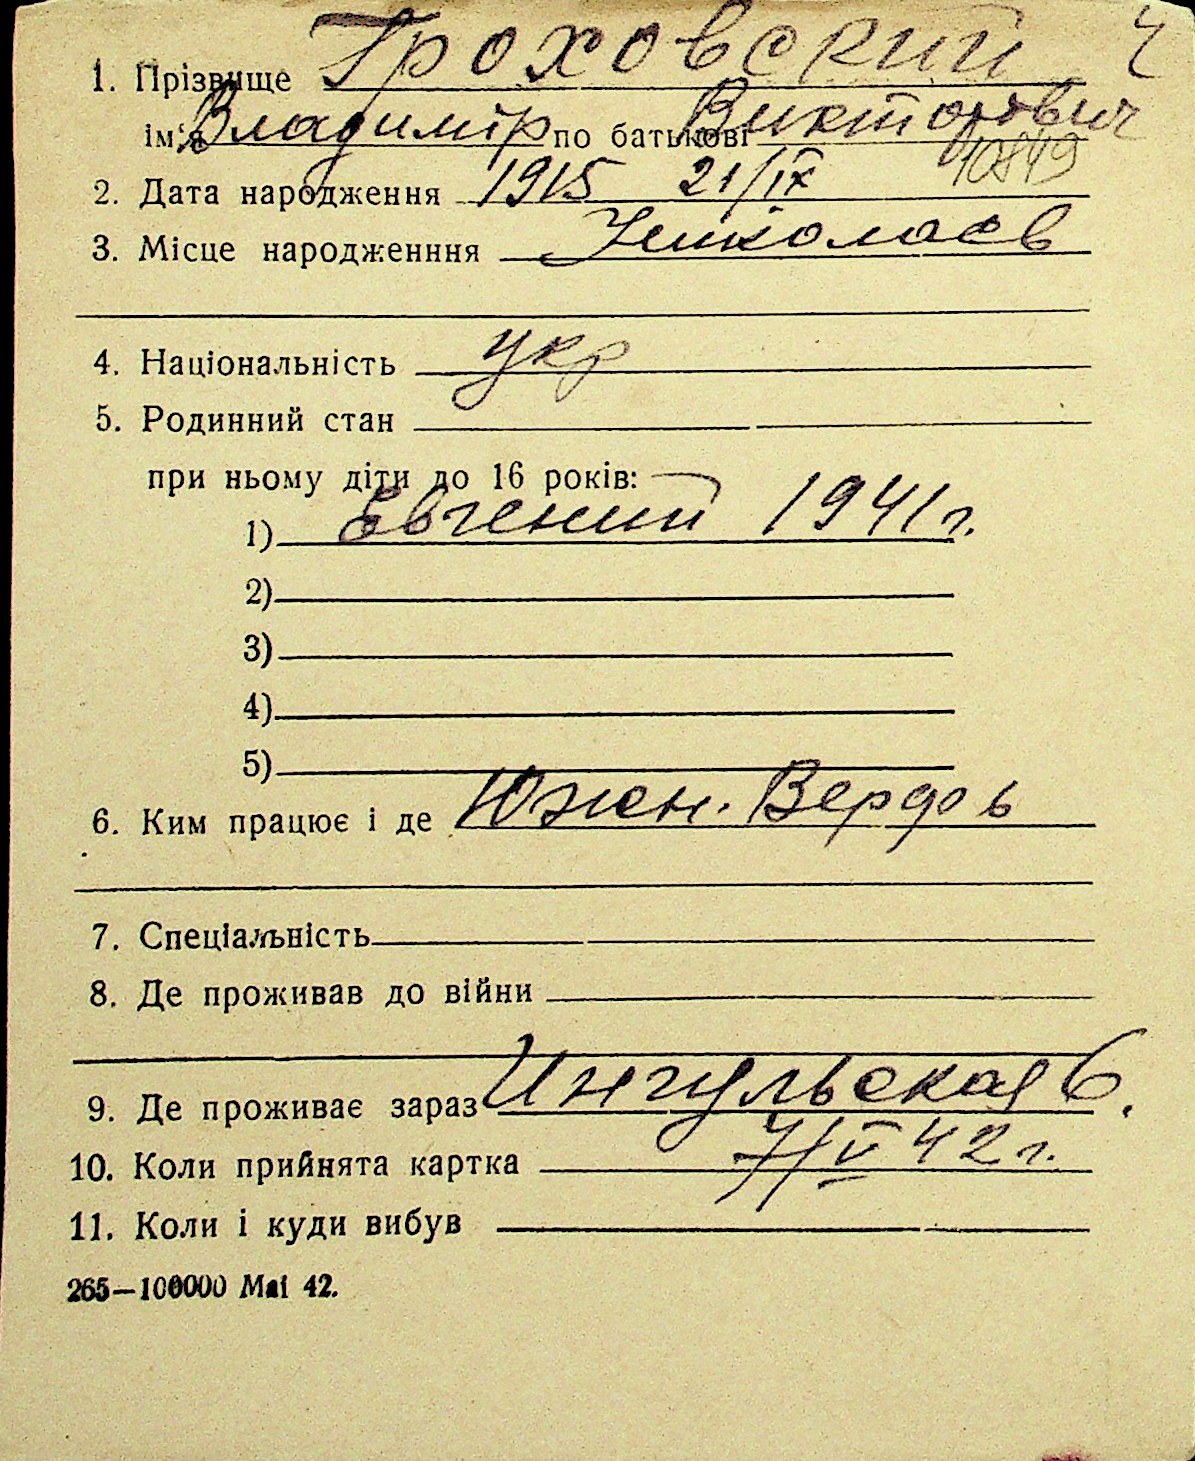 1. Прізвище Гроховский Ч
ім'я Владимір по батькові Викторович
10849
2. Дата народження 1915 21/IX
3. Місце народженння Николаев
4. Національність укр
5. Родинний стан
при ньому діти до 16 років:
1) Евгений 1941 г.
2)
3)
4)
5)
6. Ким працює і де Южн. Верфь
7. Спеціальність
8. Де проживав до війни
9. Де проживає зараз Ингульская 6.
10. Коли прийнята картка 7/V 42 г.
11. Коли і куди вибув
265—100000 Mai 42.